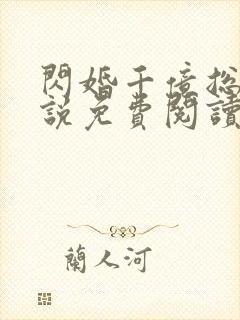 閃婚千億总
說免費閱讀
蘭人河